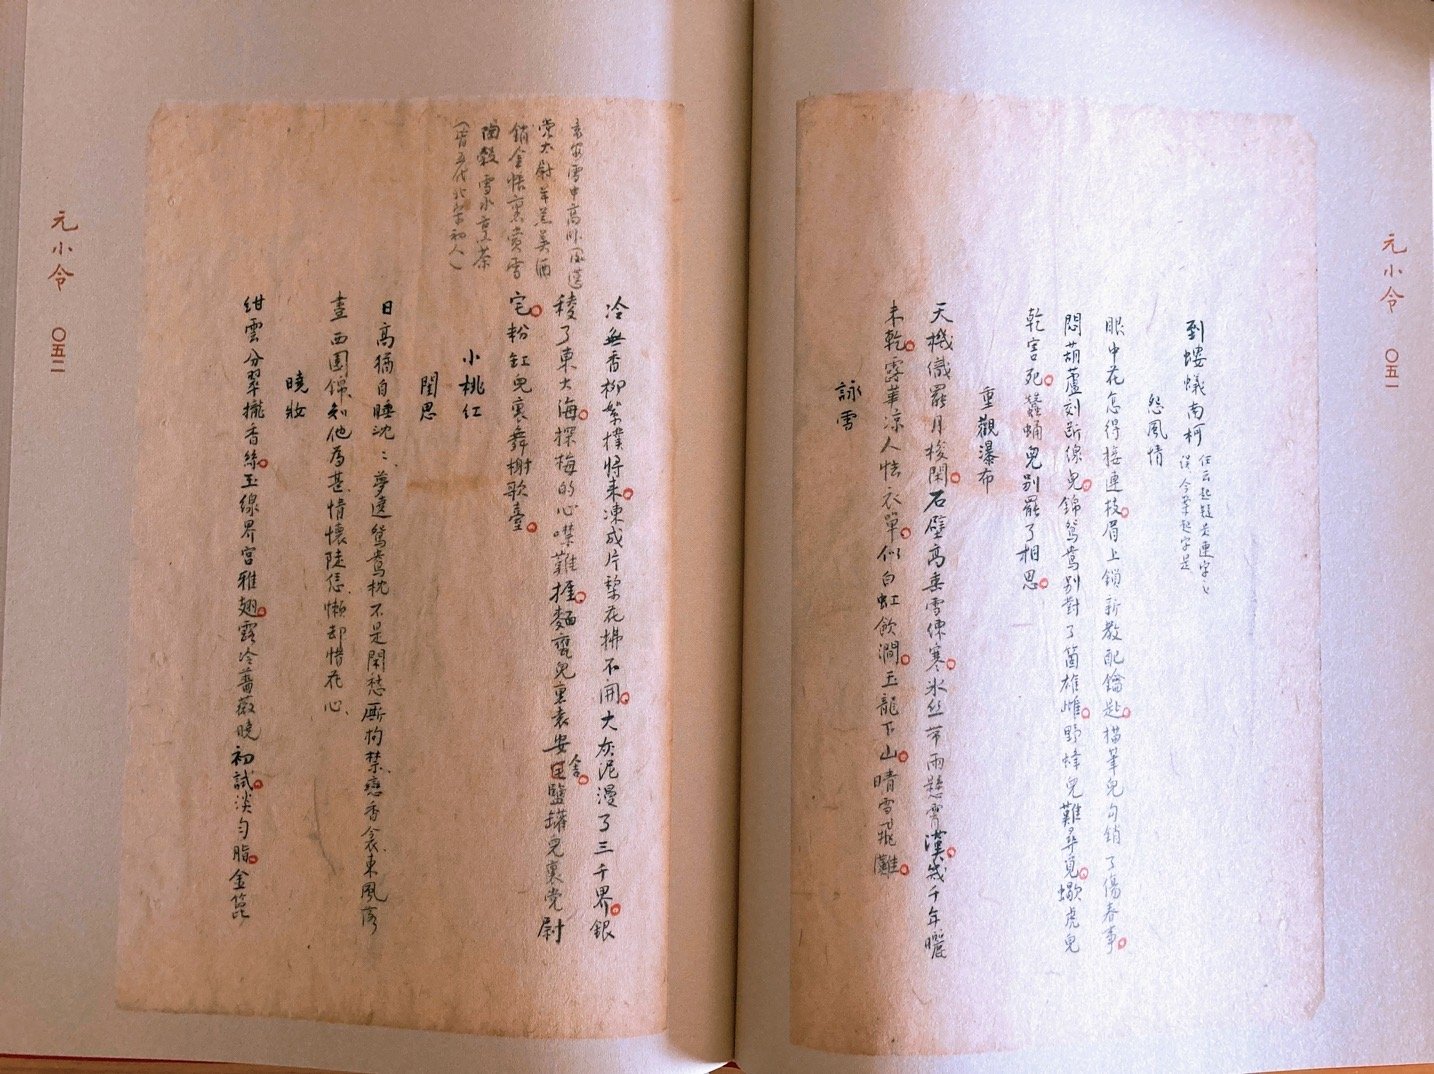 元小令
〇五一
到螻蟻南柯
誤今案起字是
怨風情
眼中花怎得接連枝眉上鎖新教配鑰匙描筆兒勾銷了傷春事
悶葫蘆刻斷線兒錦鴛鴦别對了箇雄雌野蜂兒難尋覓蠍虎兒
乾害死蠶蛹兒别罷了相思
重觀瀑布
天機織罷月梭閑石壁高垂雪練寒冰丝带雨懸霄漢幾千年曬
未乾露華凉人怯衣單似白虹飲澗玉龍下山晴雪飛灘
詠雪
袁安雪中高卧
党太尉羊羔美酒
銷金帳裏賞雪
陶穀雪水烹茶
（皆五代北宋初人）
冷無香柳絮撲将来凍成片梨花拂不開大灰泥漫了三千界銀
稜了東大海探梅的心噤難捱麵甕兒裏袁安舍鹽罐兒裏党尉
宅粉缸兒裏舞榭歌臺
小桃红
閨思
日高猶自睡沈沈夢遶鴛鴦枕不是閑愁厮拘禁戀香衾東風落
盡西園錦知他為甚情懷陡恁懶却惜花心
曉妝
紺雲分翠攏香絲玉線界宫雅翅露冷薔薇曉初試淡匀脂金篦
元小令
〇五二